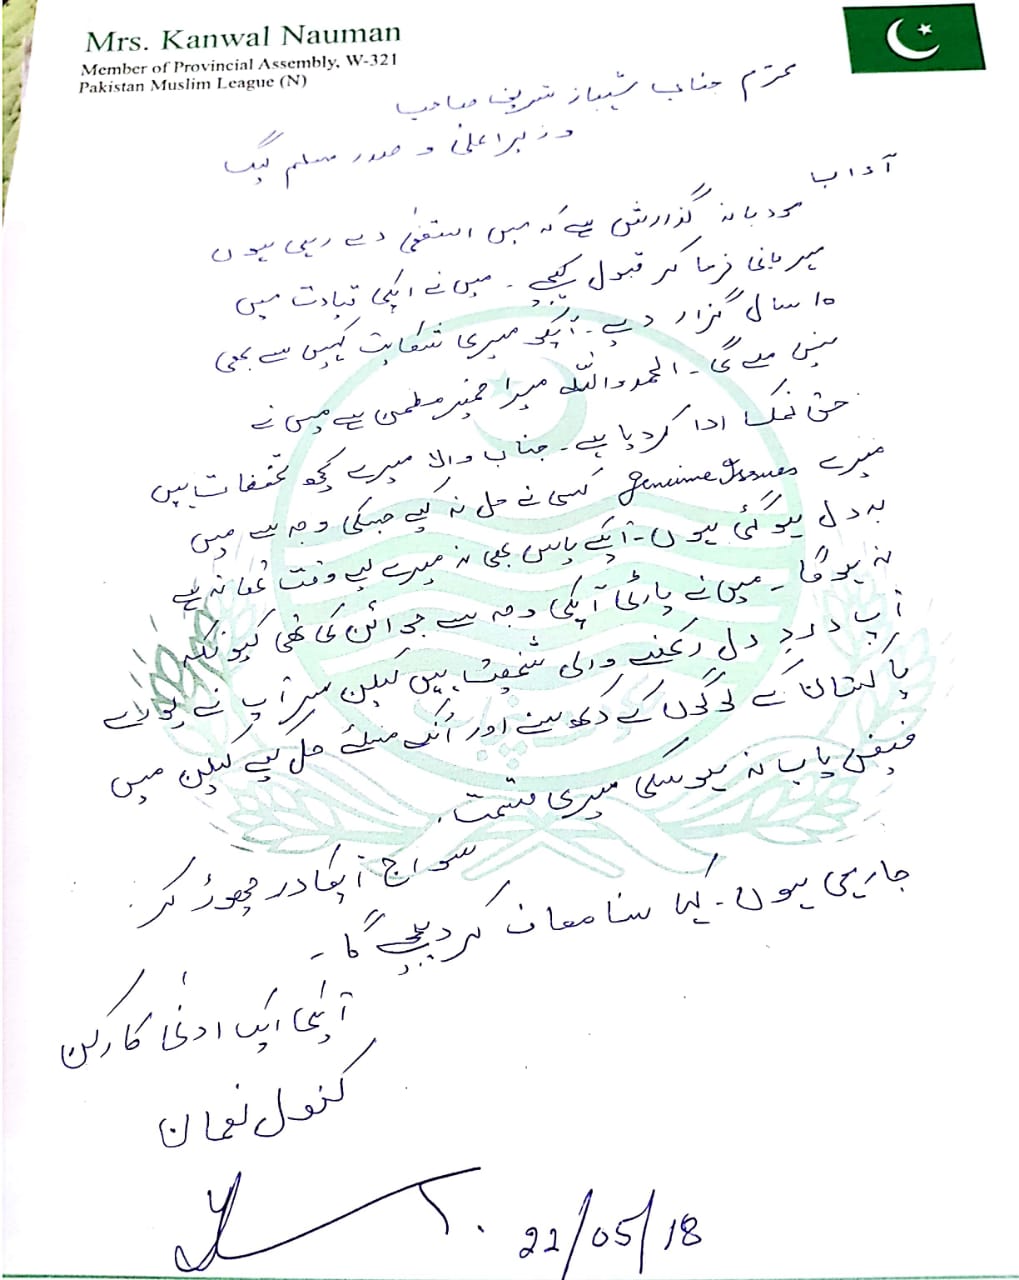 Mrs. Kanwal Nauman
Member of Provincial Assembly, W-321
Pakistan Muslim League (N)
محترم جناب شہباز شریف صاحب
وزیراعلیٰ و صدر مسلم لیگ
آداب
مودبانہ گذارش ہے کہ میں استعفیٰ دے رہی ہوں
مہربانی فرما کر قبول کیجیے ۔ میں نے آپکی قیادت میں
10 سال گزار دیے ۔ آپکو میری شکایت کہیں سے بھی
نہیں ملے گی ۔ الحمدواللہ میرا ضمیر مطمئن ہے میں نے
حق نمک ادا کر دیا ہے ۔ جناب والا میرے کچھ تحفظات ہیں
میرے genuine Issues کسی نے حل نہ کیے جسکی وجہ سے میں
بد دل ہو گئی ہوں ۔ آپکے پاس بھی نہ میرے لیے وقت تھا نہ ہے
نہ ہوگا ۔ میں نے پارٹی آپکی وجہ سے جوائن کی تھی کیونکہ
آپ درد دل رکھنے والی شخصیت ہیں لیکن سر آپ نے پورے
پاکستان کے لوگوں کے دکھ سنے اور اُنکے مسئلے حل کیے لیکن میں
فیض یاب نہ ہو سکی میری قسمت .
سو آج آپکا در چھوڑ کر
جا رہی ہوں ۔ کہا سنا معاف کر دیجیے گا ۔
آپکی ایک ادنیٰ کارکن
کنول نعمان
22/05/18